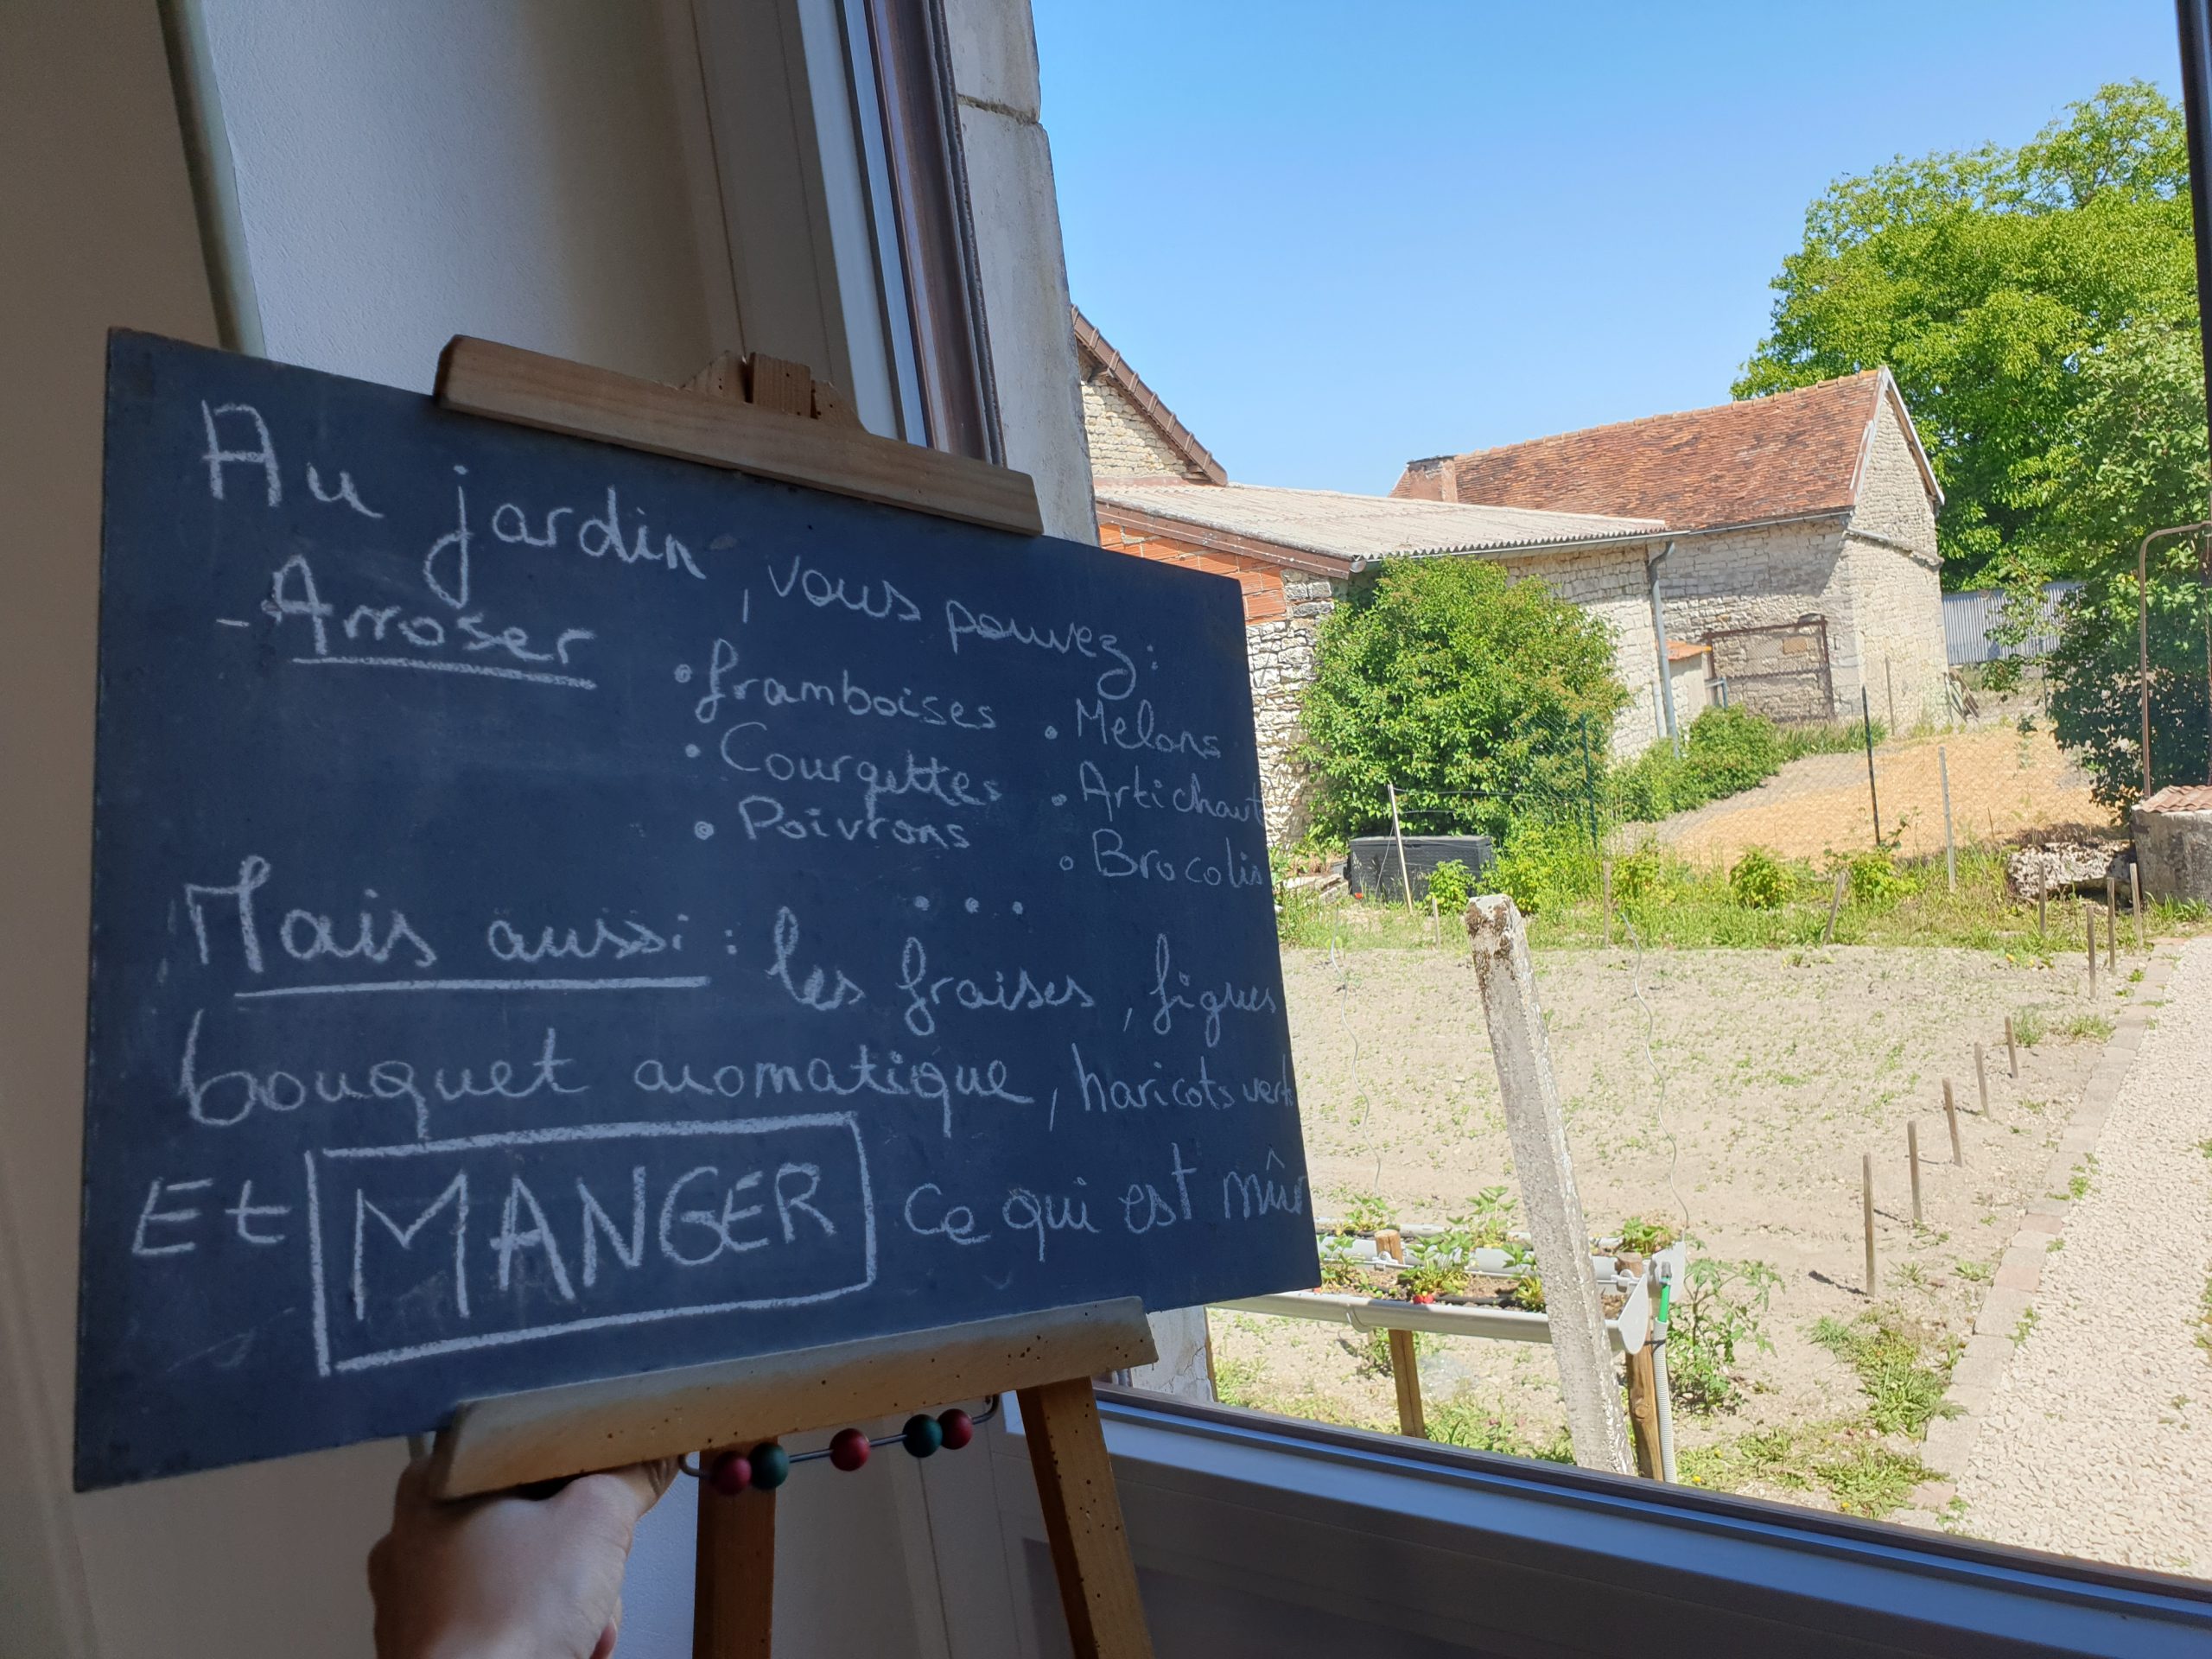 Au jardin, vous pouvez :
- Arroser
• framboises • Melons
• Courgettes • Artichaut
• Poivrons • Brocolis
...
Mais aussi : les fraises, figues
bouquet aromatique, haricots verts
Et MANGER ce qui est mûr